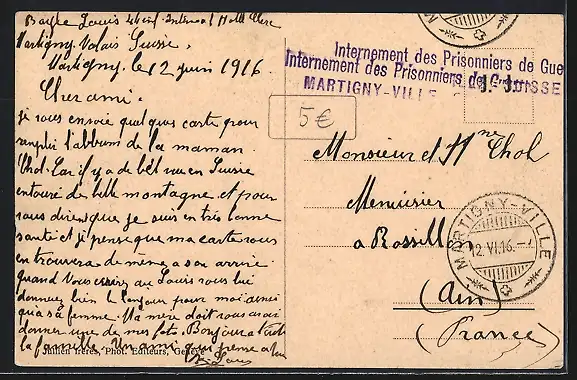 Bayle Louis
Martigny Valais Suisse.
Martigny. le 12 juin 1916
Cher ami.
je vous envoie quelques carte pour
remplir l'albbum de la maman
Chol. Car il y a de bel vue en Suisse
entouré de belle montagne. et pour
vous dire que je suis en très bonne
santé et je pense que ma carte vous
en trouvera de même a son arrivé
quand Vous essrirer au Louis vous lui
donnerez bien le bonjour pour moi ainsi
qu'a sa femme. Ma mère doit vous avoir
donner une de mes foto. Bonjour a toute
la famille. Un ami que pense a vous
Louis
Julien frères, Phot. Editeurs, Genève
Internement des Prisonniers de Gue
Internement des Prisonniers de
MARTIGNY-VILLE SUISSE
5€
Monsieur et Mme Chol
Menuisier
a Rossillon
(Ain)
(France)
MARTIGNY-VILLE
12.VI.16.-7